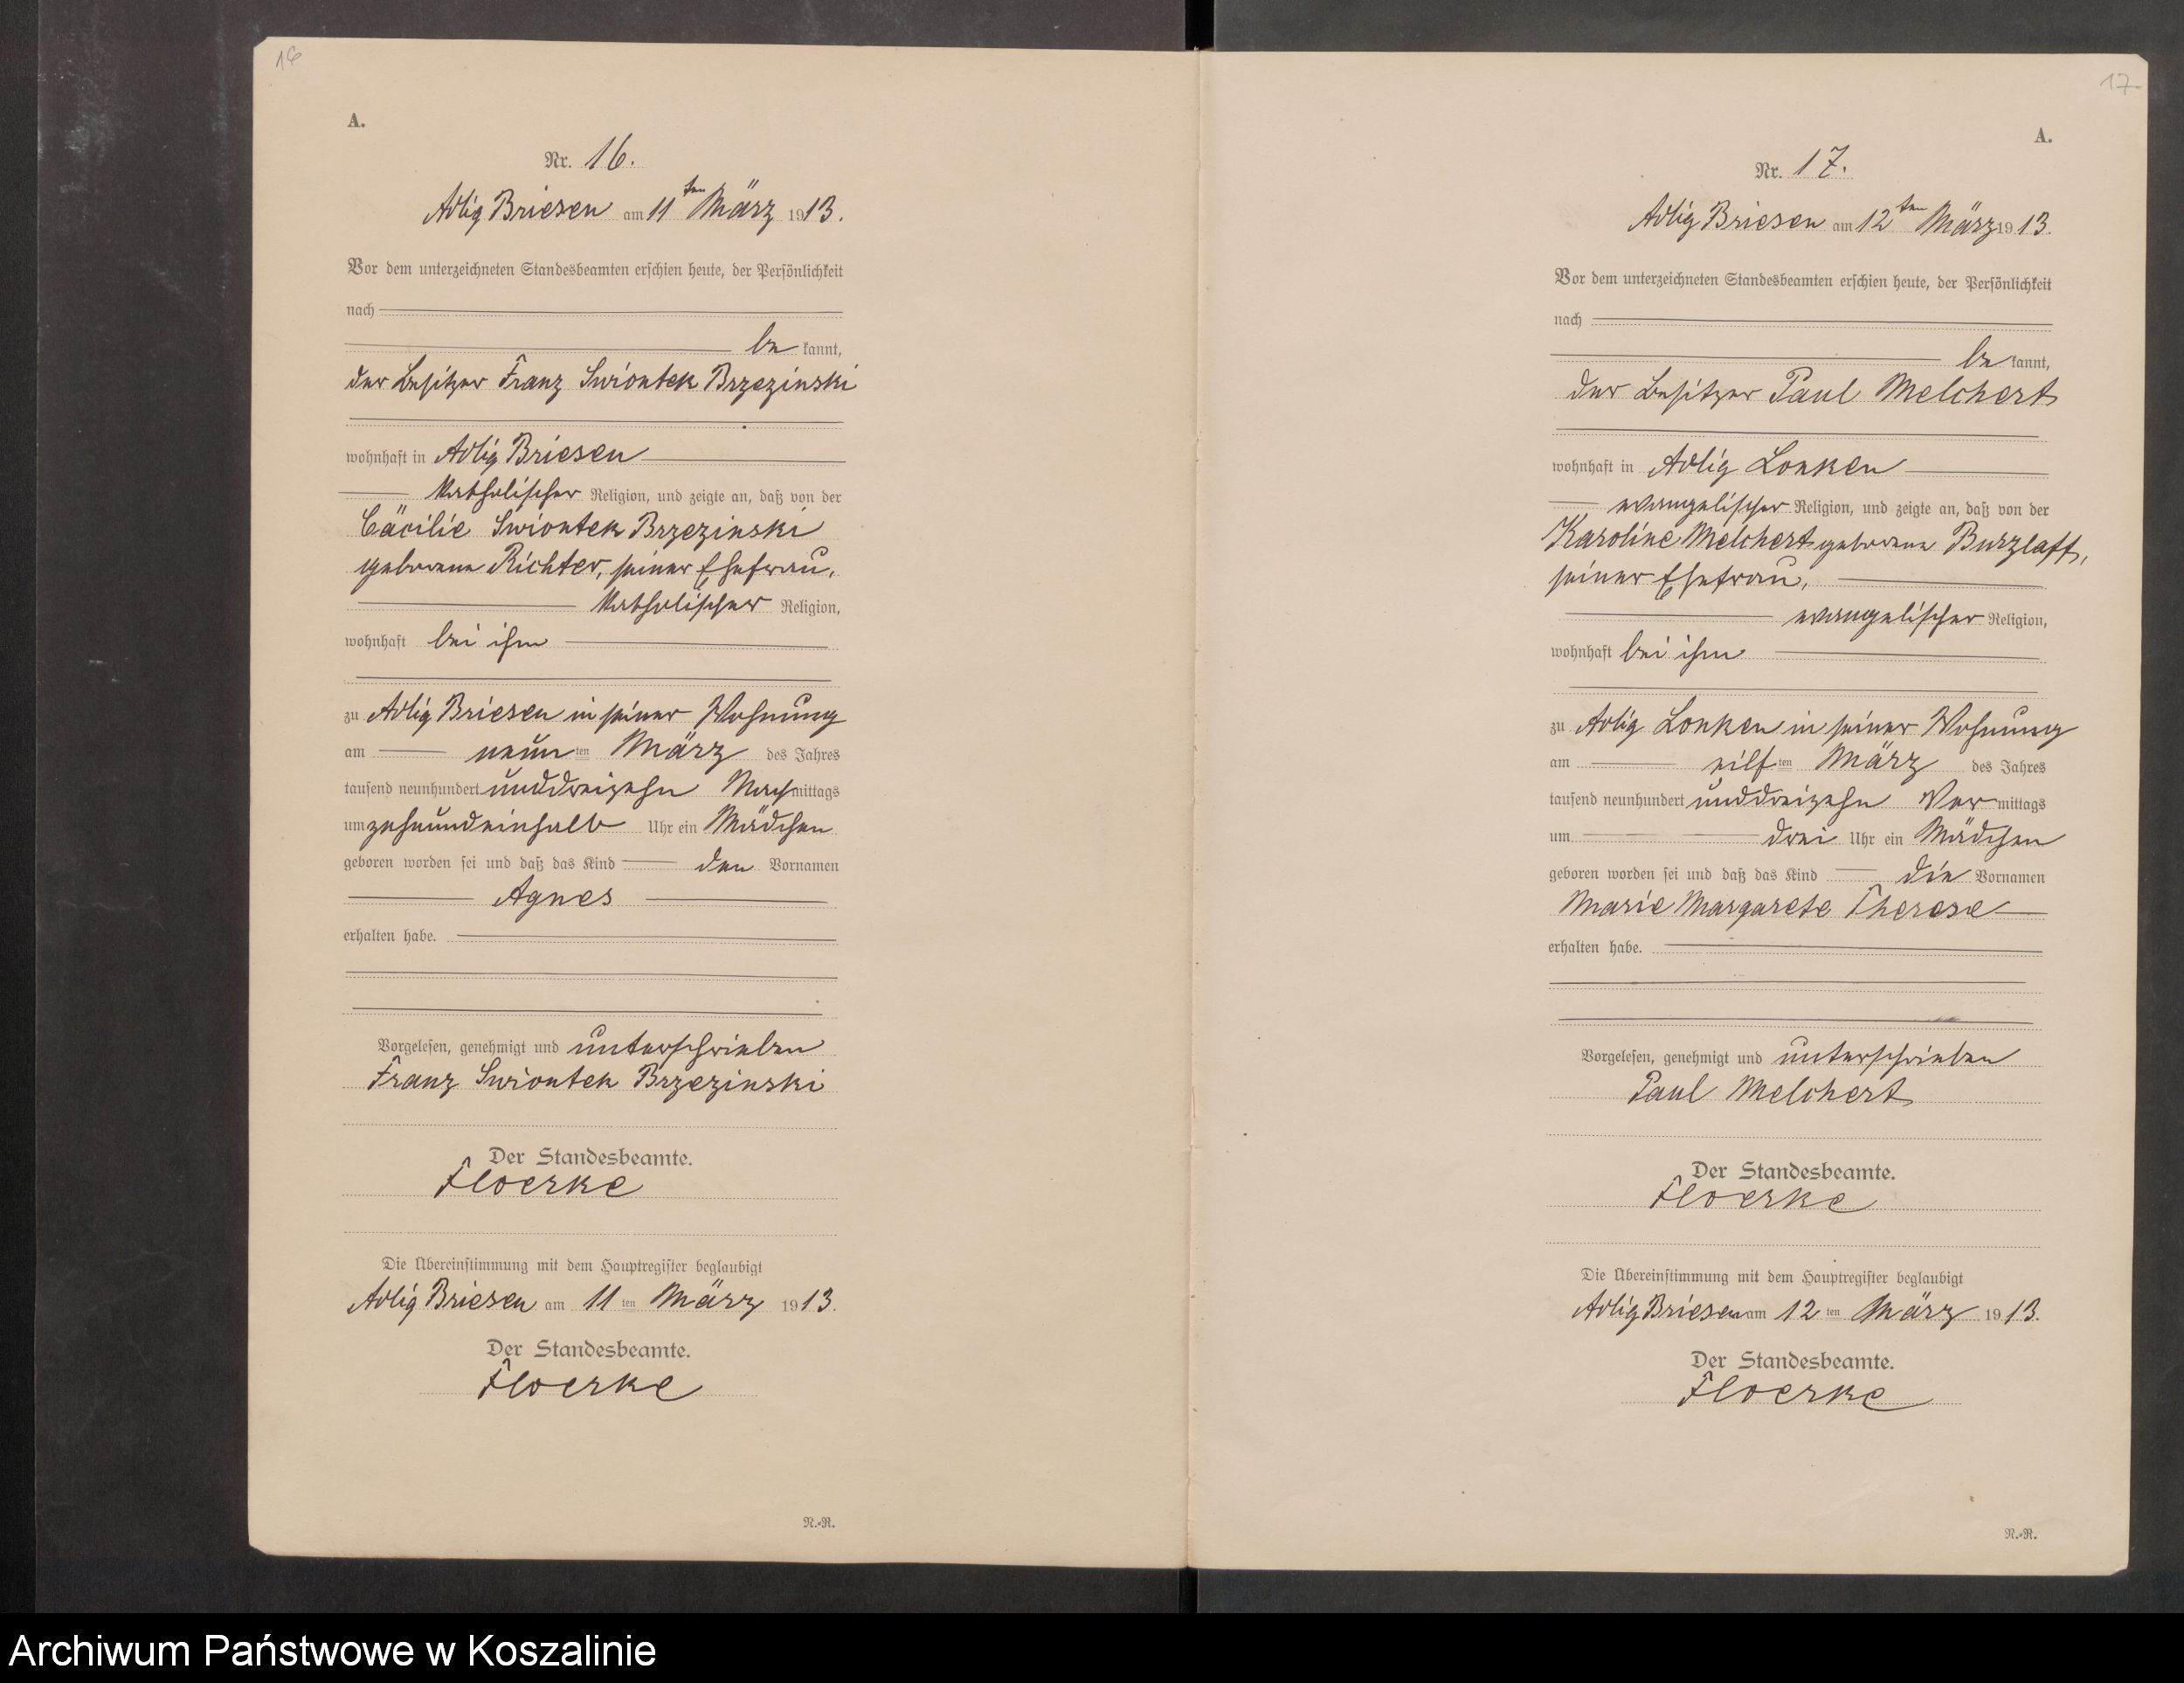 16
A.
Nr. 16.
Adlig Briesen am 11ten März 1913.
Vor dem unterzeichneten Standesbeamten erschien heute, der Persönlichkeit
nach
be kannt,
der Besitzer Franz Swiontek Brzezinski
wohnhaft in Adlig Briesen
katholischer Religion, und zeigte an, daß von der
Cäcilie Swiontek Brzezinski
geborene Richter, seiner Ehefrau,
katholischer Religion,
wohnhaft bei ihm
zu Adlig Briesen in seiner Wohnung
am neun ten März des Jahres
tausend neunhundert unddreizehn Nachmittags
um zehnundeinhalb Uhr ein Mädchen
geboren worden sei und daß das Kind den Vornamen
Agnes
erhalten habe.
Vorgelesen, genehmigt und unterschrieben
Franz Swiontek Brzezinski
Der Standesbeamte.
Floerke
Die Übereinstimmung mit dem Hauptregister beglaubigt
Adlig Briesen am 11 ten März 1913.
Der Standesbeamte.
Floerke
N.-R.
17
A.
Nr. 17.
Adlig Briesen am 12ten März 1913.
Vor dem unterzeichneten Standesbeamten erschien heute, der Persönlichkeit
nach
be kannt,
der Besitzer Paul Melchert
wohnhaft in Adlig Lonken
evangelischer Religion, und zeigte an, daß von der
Karoline Melchert geborene Burzlaff,
seiner Ehefrau,
evangelischer Religion,
wohnhaft bei ihm
zu Adlig Lonken in seiner Wohnung
am eilf ten März des Jahres
tausend neunhundert unddreizehn Vormittags
um drei Uhr ein Mädchen
geboren worden sei und daß das Kind die Vornamen
Marie Margarete Therese
erhalten habe.
Vorgelesen, genehmigt und unterschrieben
Paul Melchert
Der Standesbeamte.
Floerke
Die Übereinstimmung mit dem Hauptregister beglaubigt
Adlig Briesen am 12 ten März 1913.
Der Standesbeamte.
Floerke
N.-R.
Archiwum Państwowe w Koszalinie